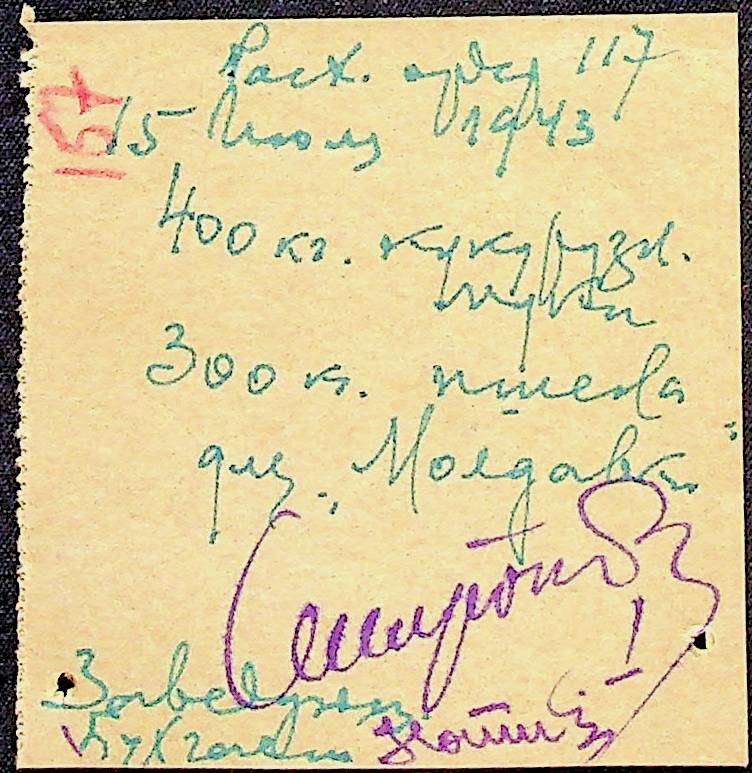 157
Расх. ордер 117
15 Июля 1943
400 кг. кукурузн.
муки
300 кг. пшена
для „Молдавки"
Смирнов
Заведующ
бухгалт